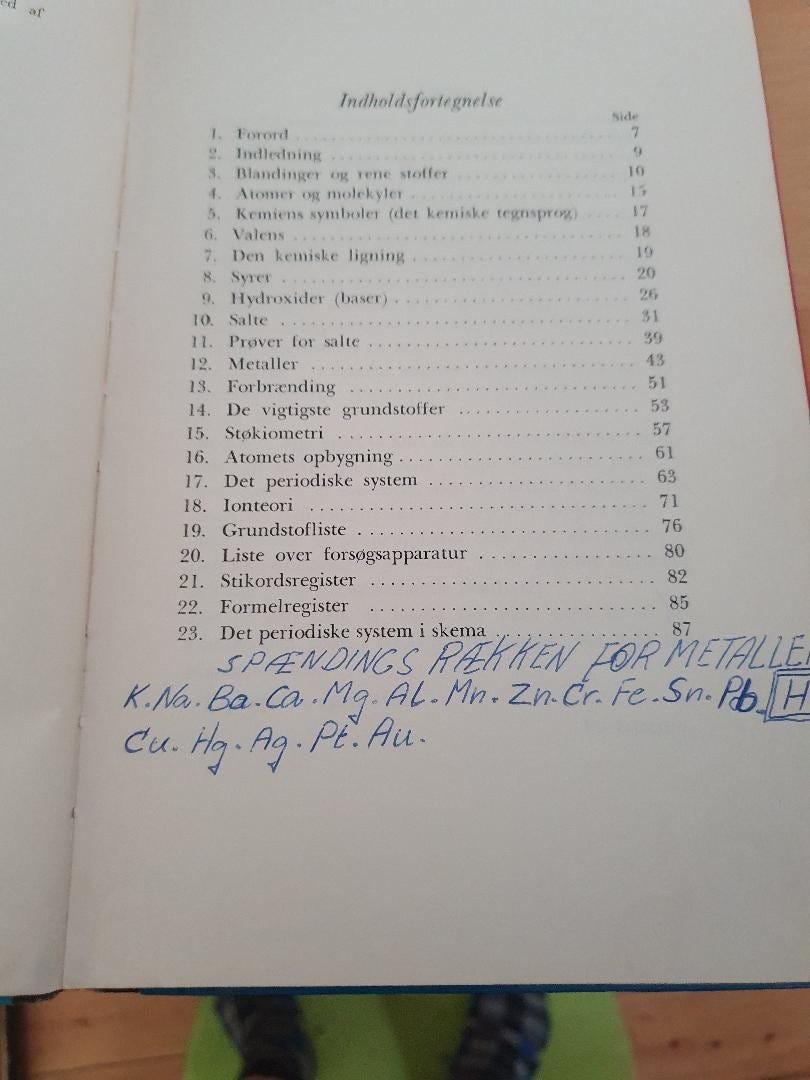 ed af
Indholdsfortegnelse
Side
1. Forord 7
2. Indledning 9
3. Blandinger og rene stoffer 10
4. Atomer og molekyler 15
5. Kemiens symboler (det kemiske tegnsprog) 17
6. Valens 18
7. Den kemiske ligning 19
8. Syrer 20
9. Hydroxider (baser) 26
10. Salte 31
11. Prøver for salte 39
12. Metaller 43
13. Forbrænding 51
14. De vigtigste grundstoffer 53
15. Støkiometri 57
16. Atomets opbygning 61
17. Det periodiske system 63
18. Ionteori 71
19. Grundstofliste 76
20. Liste over forsøgsapparatur 80
21. Stikordsregister 82
22. Formelregister 85
23. Det periodiske system i skema 87
SPÆNDINGS RÆKKEN FOR METALLER
K.Na.Ba.Ca.Mg.Al.Mn.Zn.Cr.Fe.Sn.Pb. H
Cu. Hg. Ag. Pt. Au.